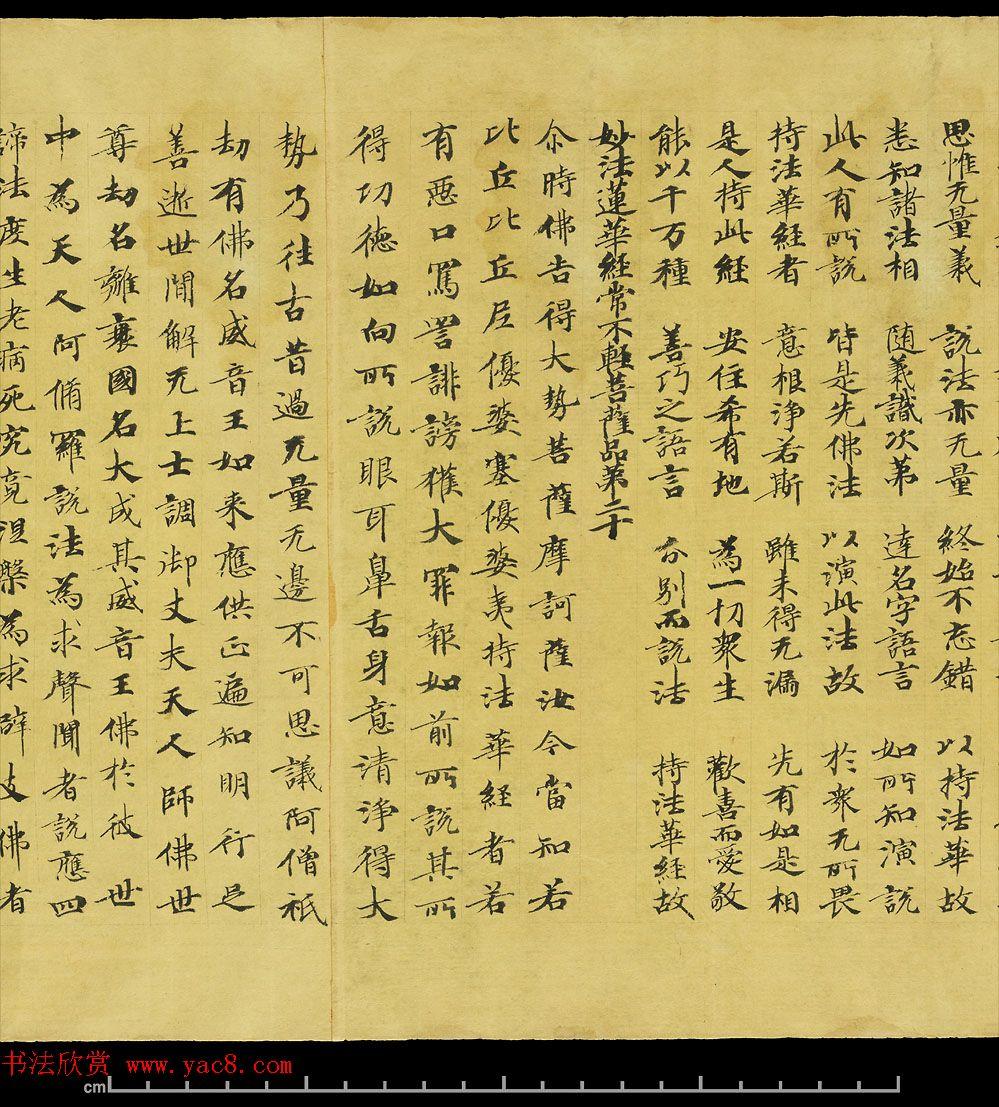 思惟无量義 說法亦无量 終始不忘錯 以持法華故
悉知諸法相 随義識次第 達名字語言 如所知演說
此人有所說 皆是先佛法 以演此法故 於衆无所畏
持法華經者 意根浄若斯 雖未得无漏 先有如是相
是人持此經 安住希有地 為一切衆生 歡喜而愛敬
能以千万種 善巧之語言 分別而說法 持法華經故
妙法蓮華經常不輕菩薩品第二十
尒時佛告得大勢菩薩摩訶薩汝今當知若
比丘比丘尼優婆塞優婆夷持法華經者若
有惡口罵詈誹謗獲大罪報如前所說其所
得功德如向所說眼耳鼻舌身意清浄得大
勢乃往古昔過无量无邊不可思議阿僧祇
劫有佛名威音王如来應供正遍知明行足
善逝世閒解无上士調御丈夫天人師佛世
尊劫名離衰國名大成其威音王佛於彼世
中為天人阿脩羅說法為求聲聞者說應四
諦法度生老病死究竟涅槃為求辟支佛者
书法欣赏 www.yac8.com
cm